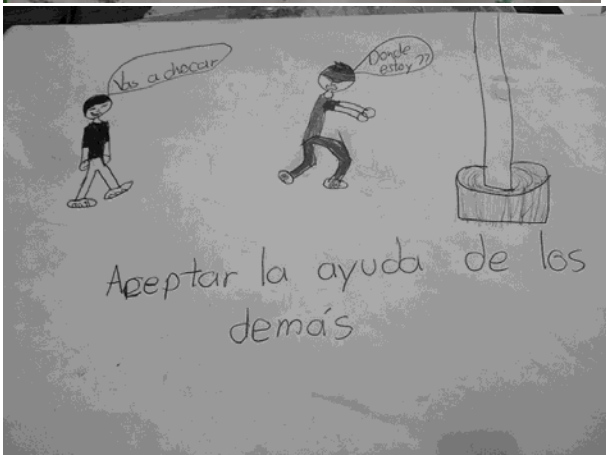 Vas a chocar
Donde
estoy ??
Aceptar la ayuda de los
demás